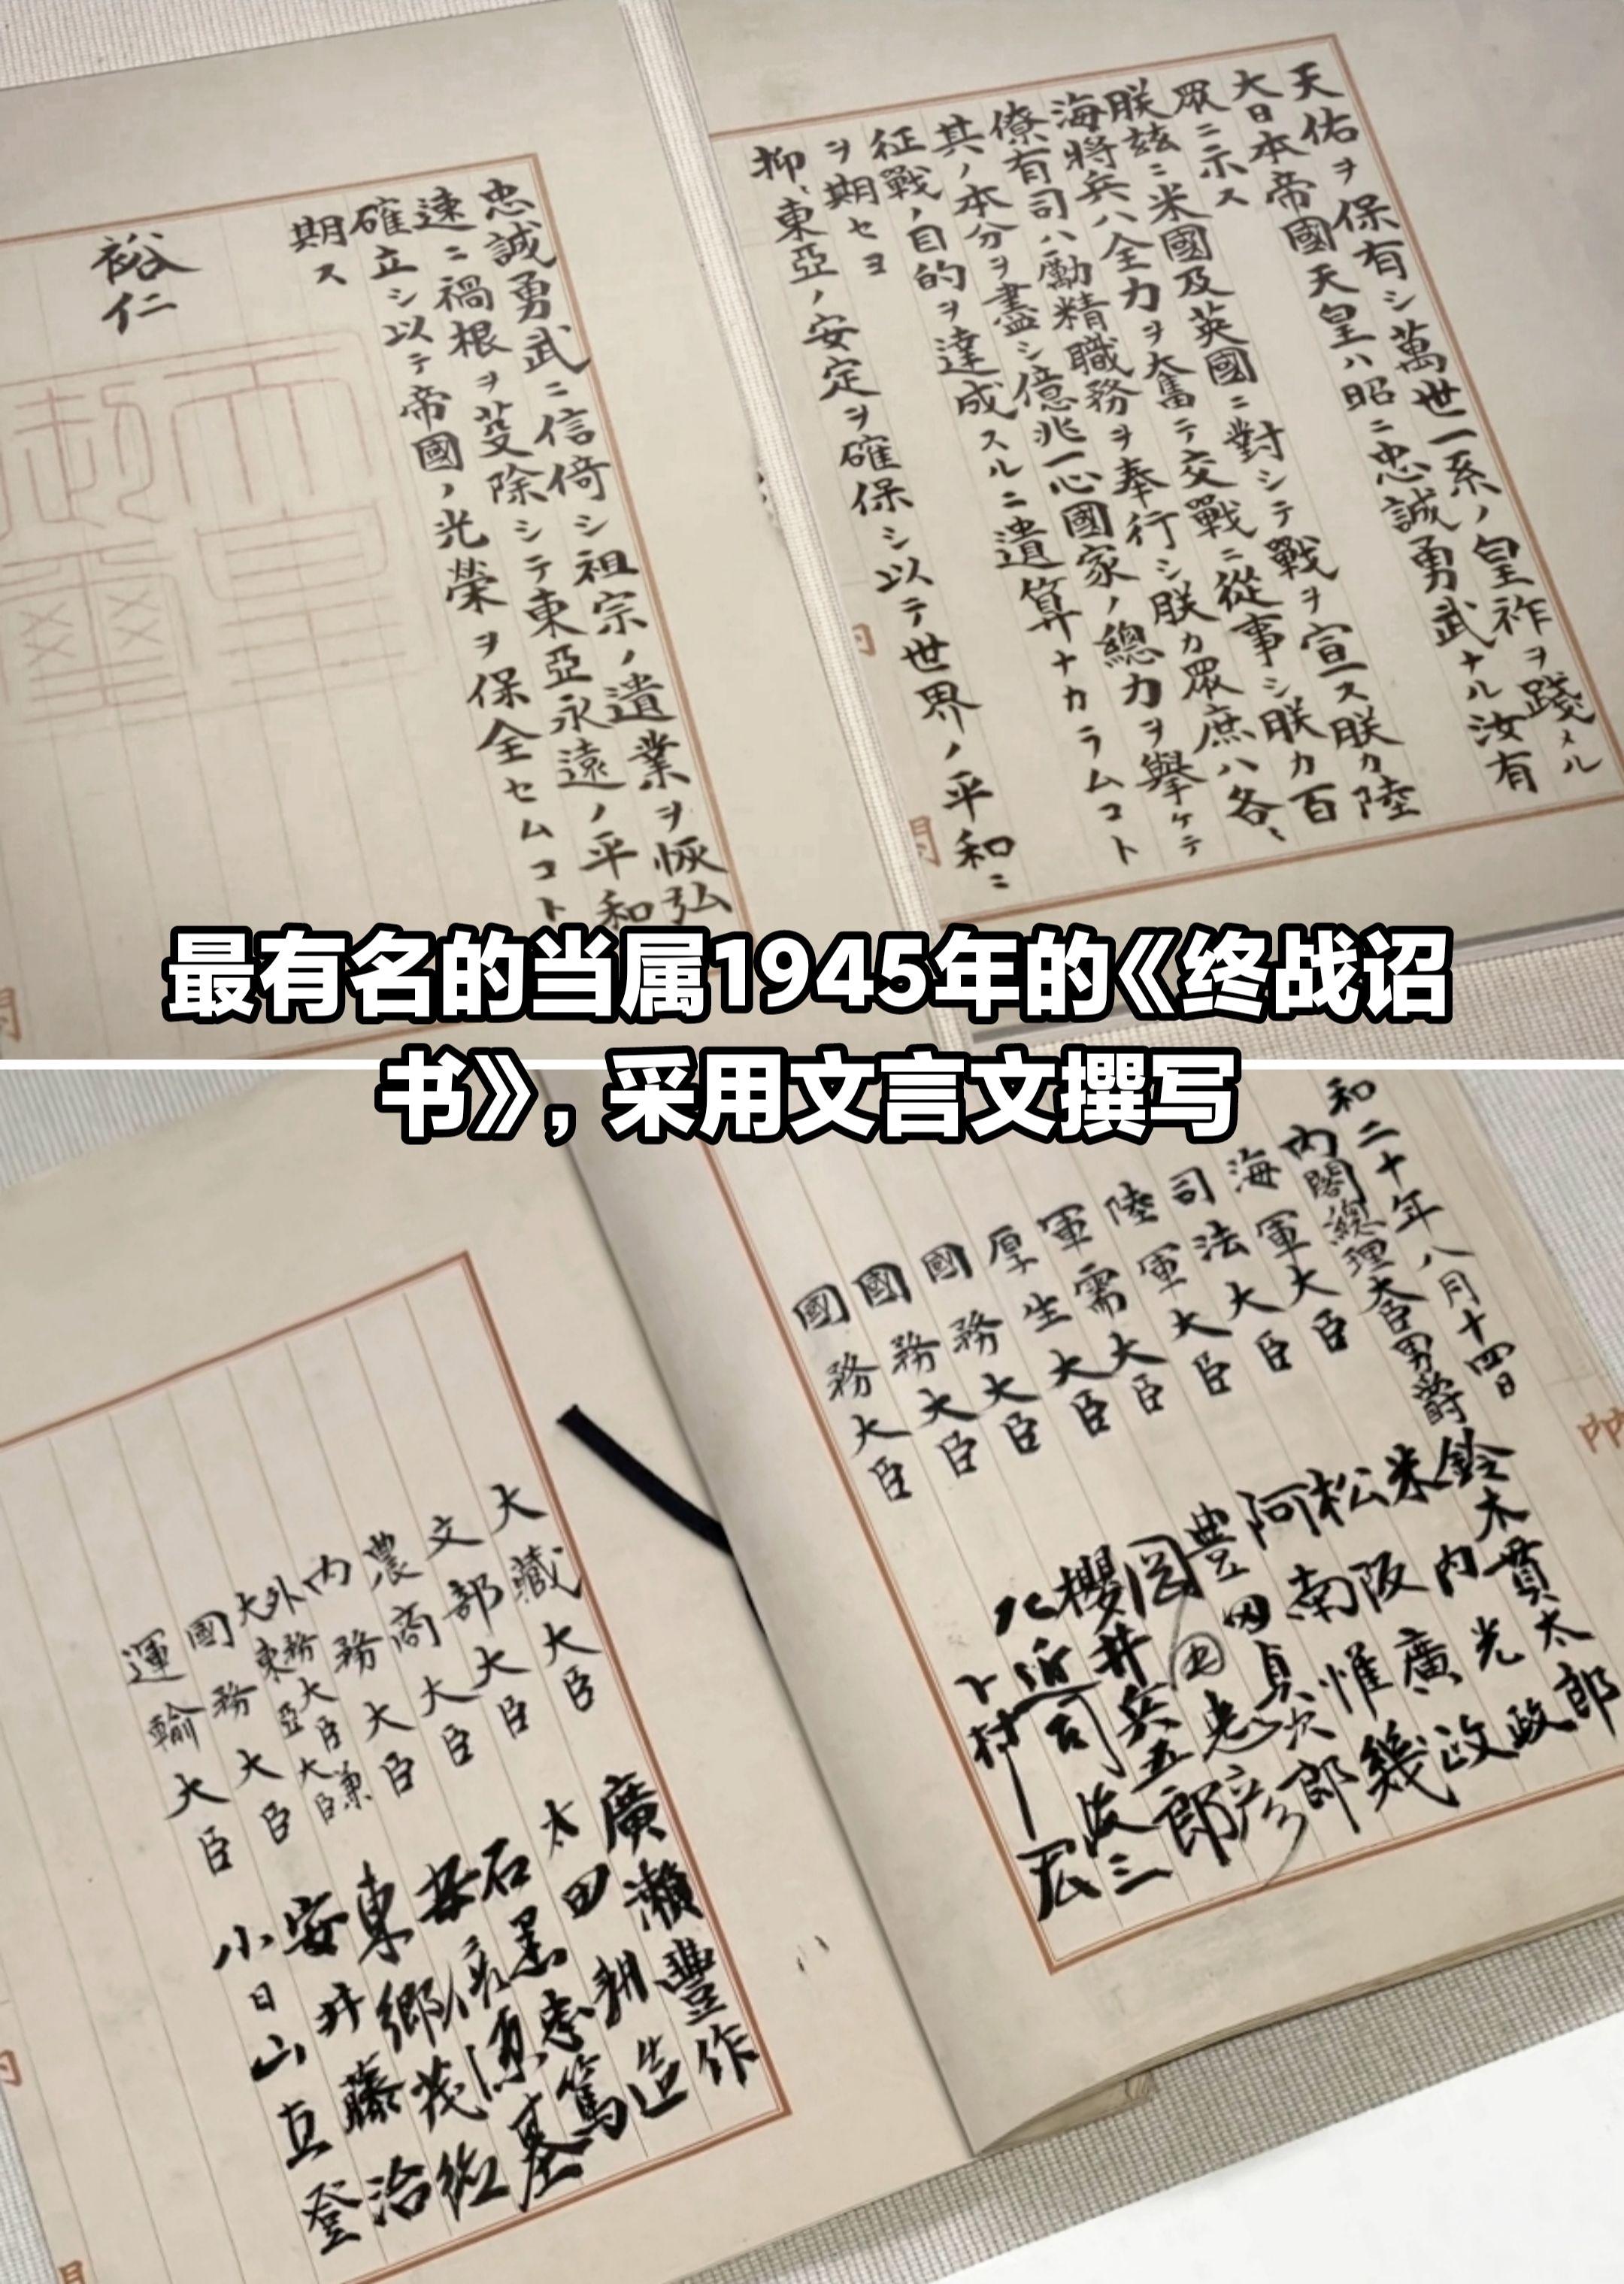 天佑ヲ保有シ萬世一系ノ皇祚ヲ踐メル
大日本帝國天皇ハ昭ニ忠誠勇武ナル汝有
眾ニ示ス
朕茲ニ米國及英國ニ對シテ戰ヲ宣ス朕カ陸
海將兵ハ全力ヲ奮テ交戰ニ從事シ朕カ百
僚有司ハ勵精職務ヲ奉行シ朕カ眾庶ハ各〻
其ノ本分ヲ盡シ億兆一心國家ノ總力ヲ擧ケテ
征戰ノ目的ヲ達成スルニ遺算ナカラムコト
ヲ期セヨ
抑〻東亞ノ安定ヲ確保シ以テ世界ノ平和ニ
忠誠勇武ニ信倚シ祖宗ノ遺業ヲ恢弘
速ニ禍根ヲ芟除シテ東亞永遠ノ平和
確立シ以テ帝國ノ光榮ヲ保全セムコト
期ス
裕仁
天皇
御璽
最有名的当属1945年的《终战诏
书》，采用文言文撰写
和二十年八月十四日
内閣總理大臣男爵 鈴木貫太郎
海軍大臣 米内光政
司法大臣 松阪廣政
陸軍大臣 阿南惟幾
軍需大臣 豊田貞次郎
厚生大臣 岡田忠彦
國務大臣 櫻井兵五郎
國務大臣 左近司政三
國務大臣 下村宏
大藏大臣 廣瀬豐作
文部大臣 太田耕造
農商大臣 石黑忠篤
内務大臣 安倍源基
外務大臣兼
大東亞大臣 東郷茂徳
國務大臣 安井藤治
運輸大臣 小日山直登